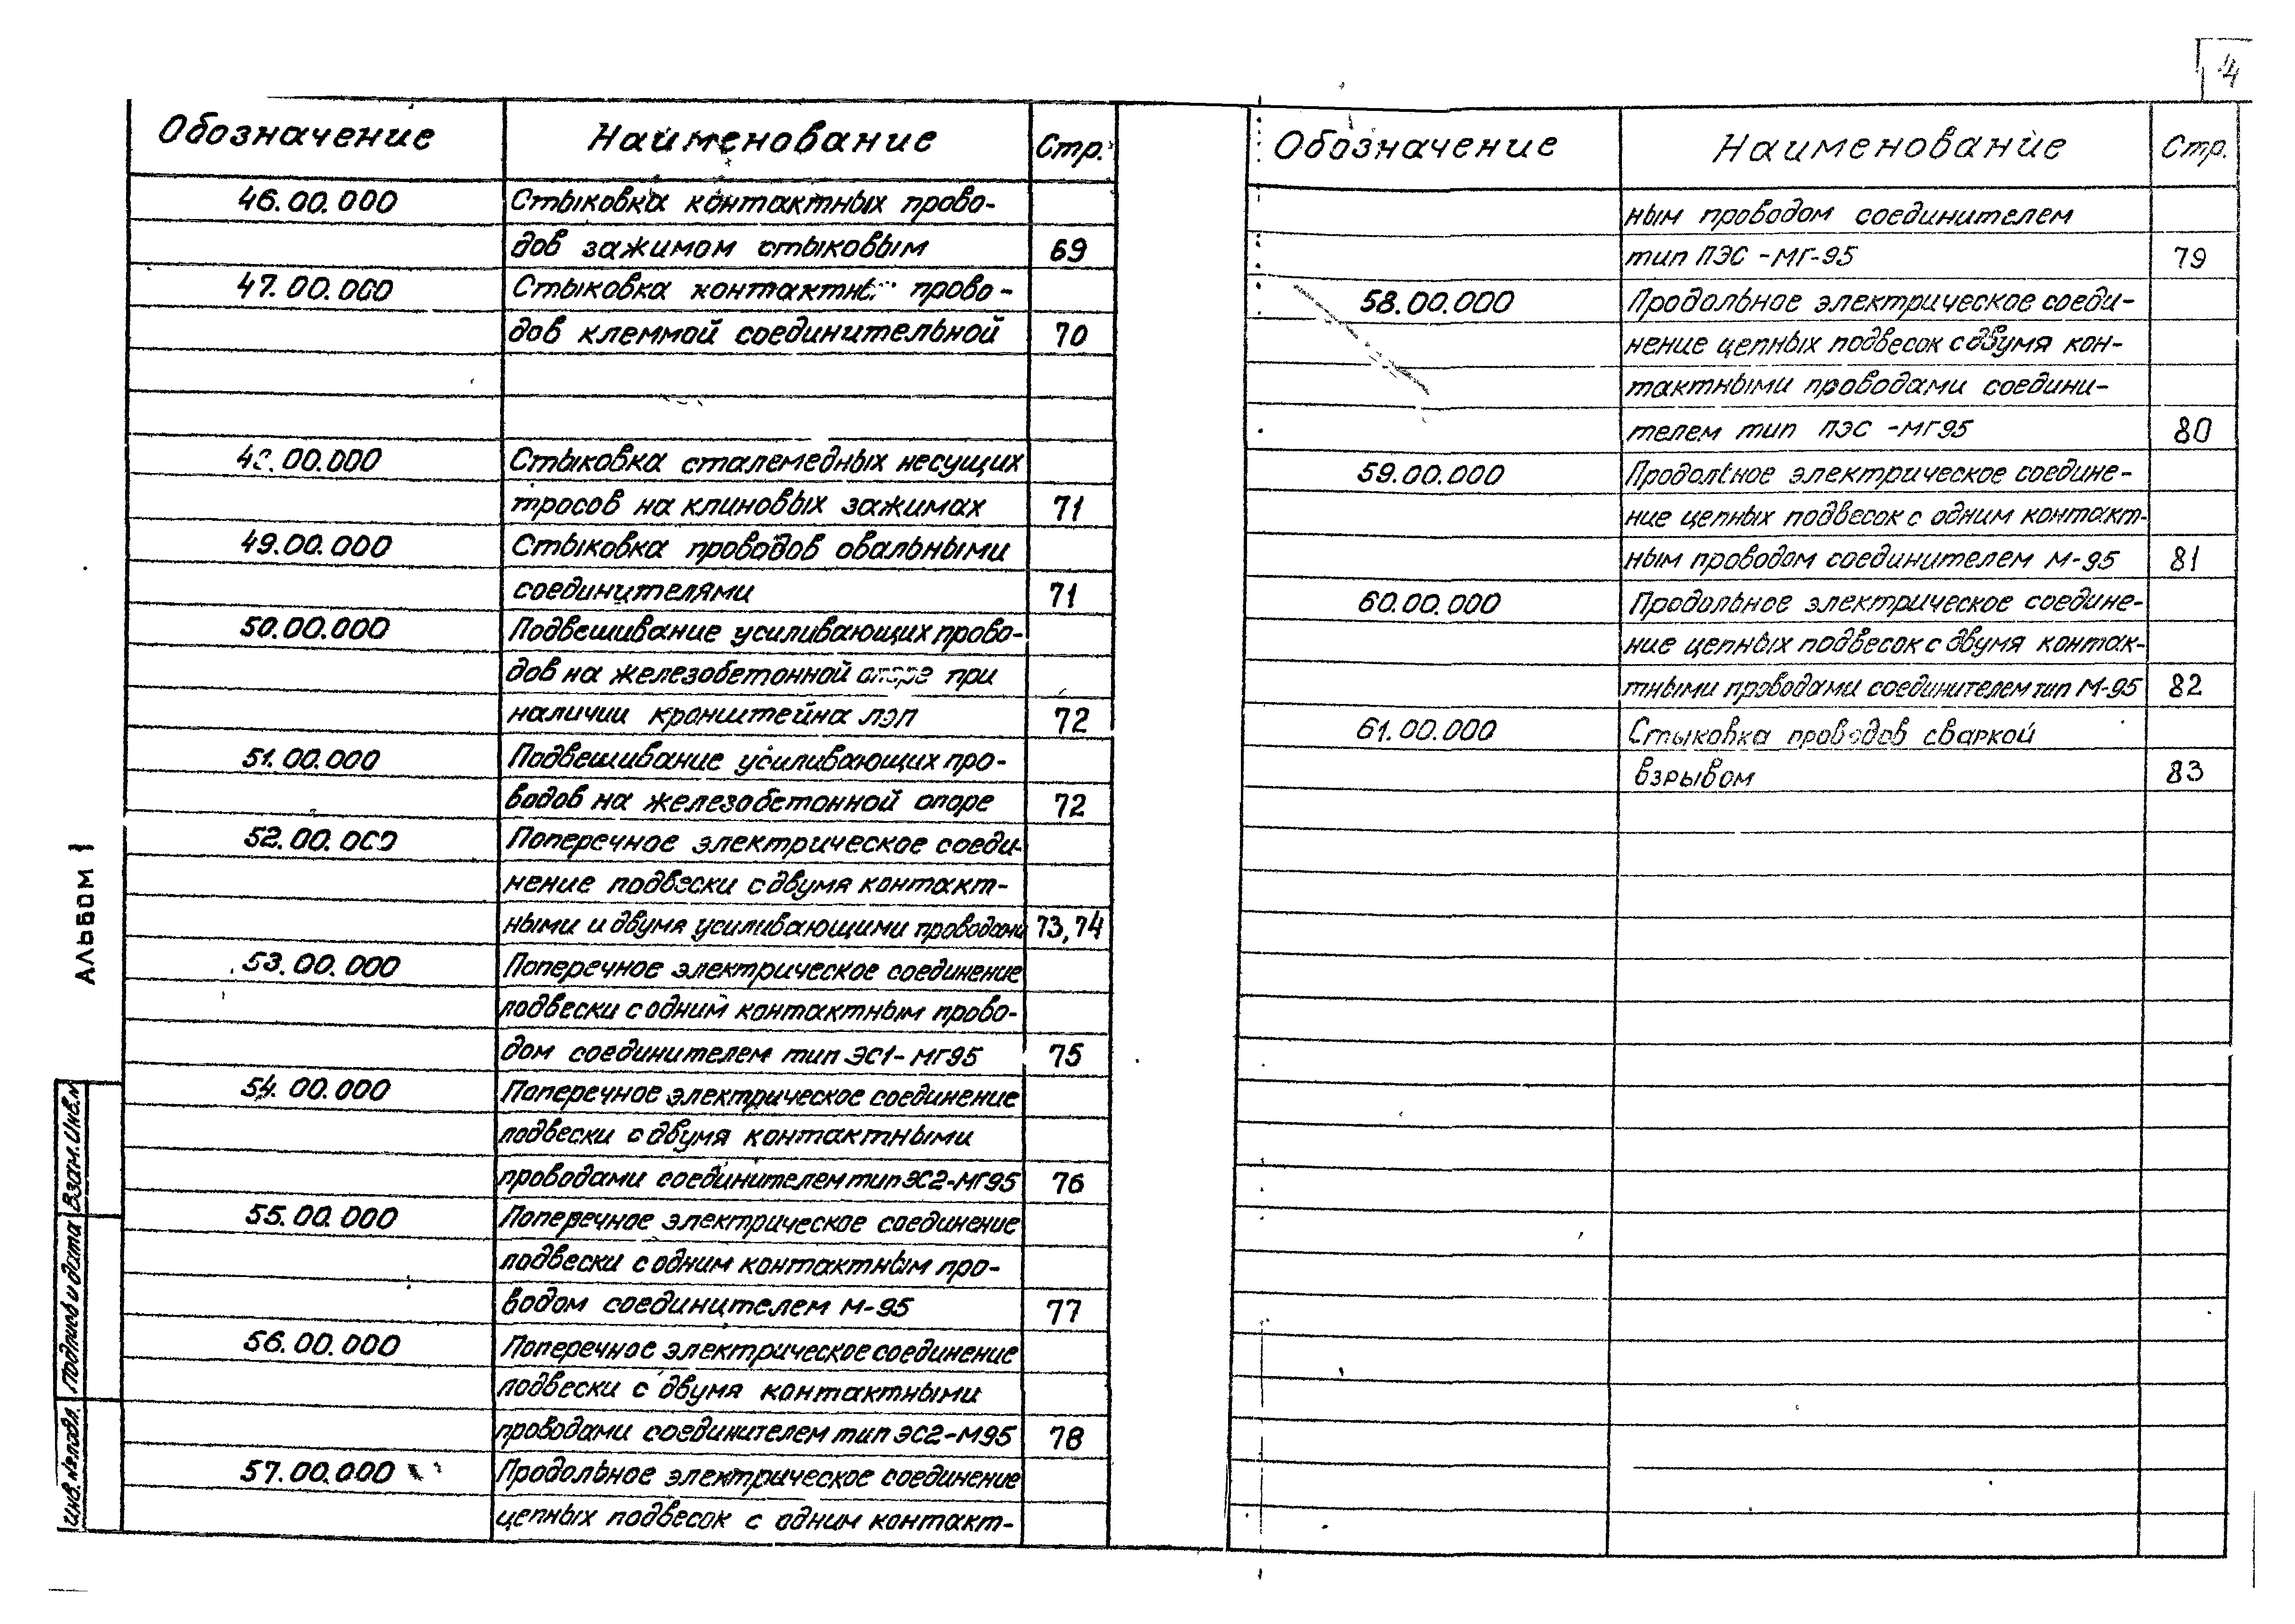 4
Обозначение Наименование Стр.
46.00.000 Стыковка контактных прово-
дов зажимом стыковым 69
47.00.000 Стыковка прово-
дов клеммой соединительной 70
Стыковка сталемедных несущих
тросов на клиновых зажимах 71
49.00.000 Стыковка проводов овальными
соединителями 71
50.00.000 Подвешивание усиливающих прово-
дов на железобетонной опоре при
наличии кронштейна ЛЭП 72
51.00.000 Подвешивание усиливающих про-
водов на железобетонной опоре 72
52.00.000 Поперечное электрическое соеди-
нение подвески с двумя контакт-
ными и двумя усиливающими проводами 73,74
53.00.000 Поперечное электрическое соединение
подвески с одним контактным прово-
дом соединителем тип ЭС1-МГ95 75
54.00.000 Поперечное электрическое соединение
подвески с двумя контактными
проводами соединителем тип ЭС2-МГ95 76
55.00.000 Поперечное электрическое соединение
подвески с одним контактным про-
водом соединителем М-95 77
56.00.000 Поперечное электрическое соединение
подвески с двумя контактными
проводами соединителем тип ЭС2-М95 78
57.00.000 Продольное электрическое соединение
цепных подвесок с одним контакт-
Обозначение Наименование Стр.
ным проводом соединителем
тип ПЭС-МГ-95 79
58.00.000 Продольное электрическое соеди-
нение цепных подвесок с двумя кон-
тактными проводами соедини-
телем тип ПЭС-МГ95 80
59.00.000 Продольное электрическое соедине-
ние цепных подвесок с одним контакт-
ным проводом соединителем М-95 81
60.00.000 Продольное электрическое соедине-
ние цепных подвесок с двумя контак-
тными проводами соединителем тип М-95 82
61.00.000 Стыковка проводов сваркой
взрывом 83
АЛЬБОМ 1
Взам. Инв. №
Подпись и дата
Инв. № подл.